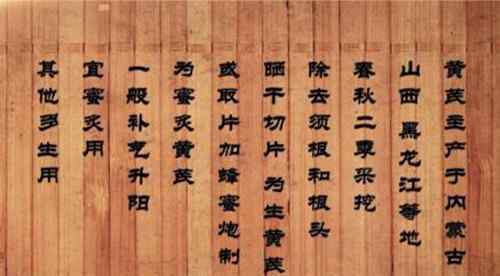 黄芪主产于内蒙古
山西 黑龙江等地
春秋二季采挖
除去须根和根头
晒干切片 为生黄芪
或取片加蜂蜜炮制
为蜜炙黄芪
一般补气升阳
宜蜜炙用
其他多生用